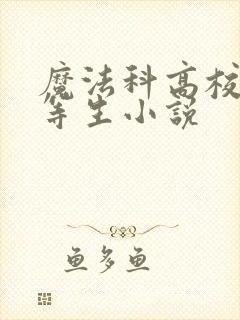 魔法科高校
等生小説
鱼多鱼